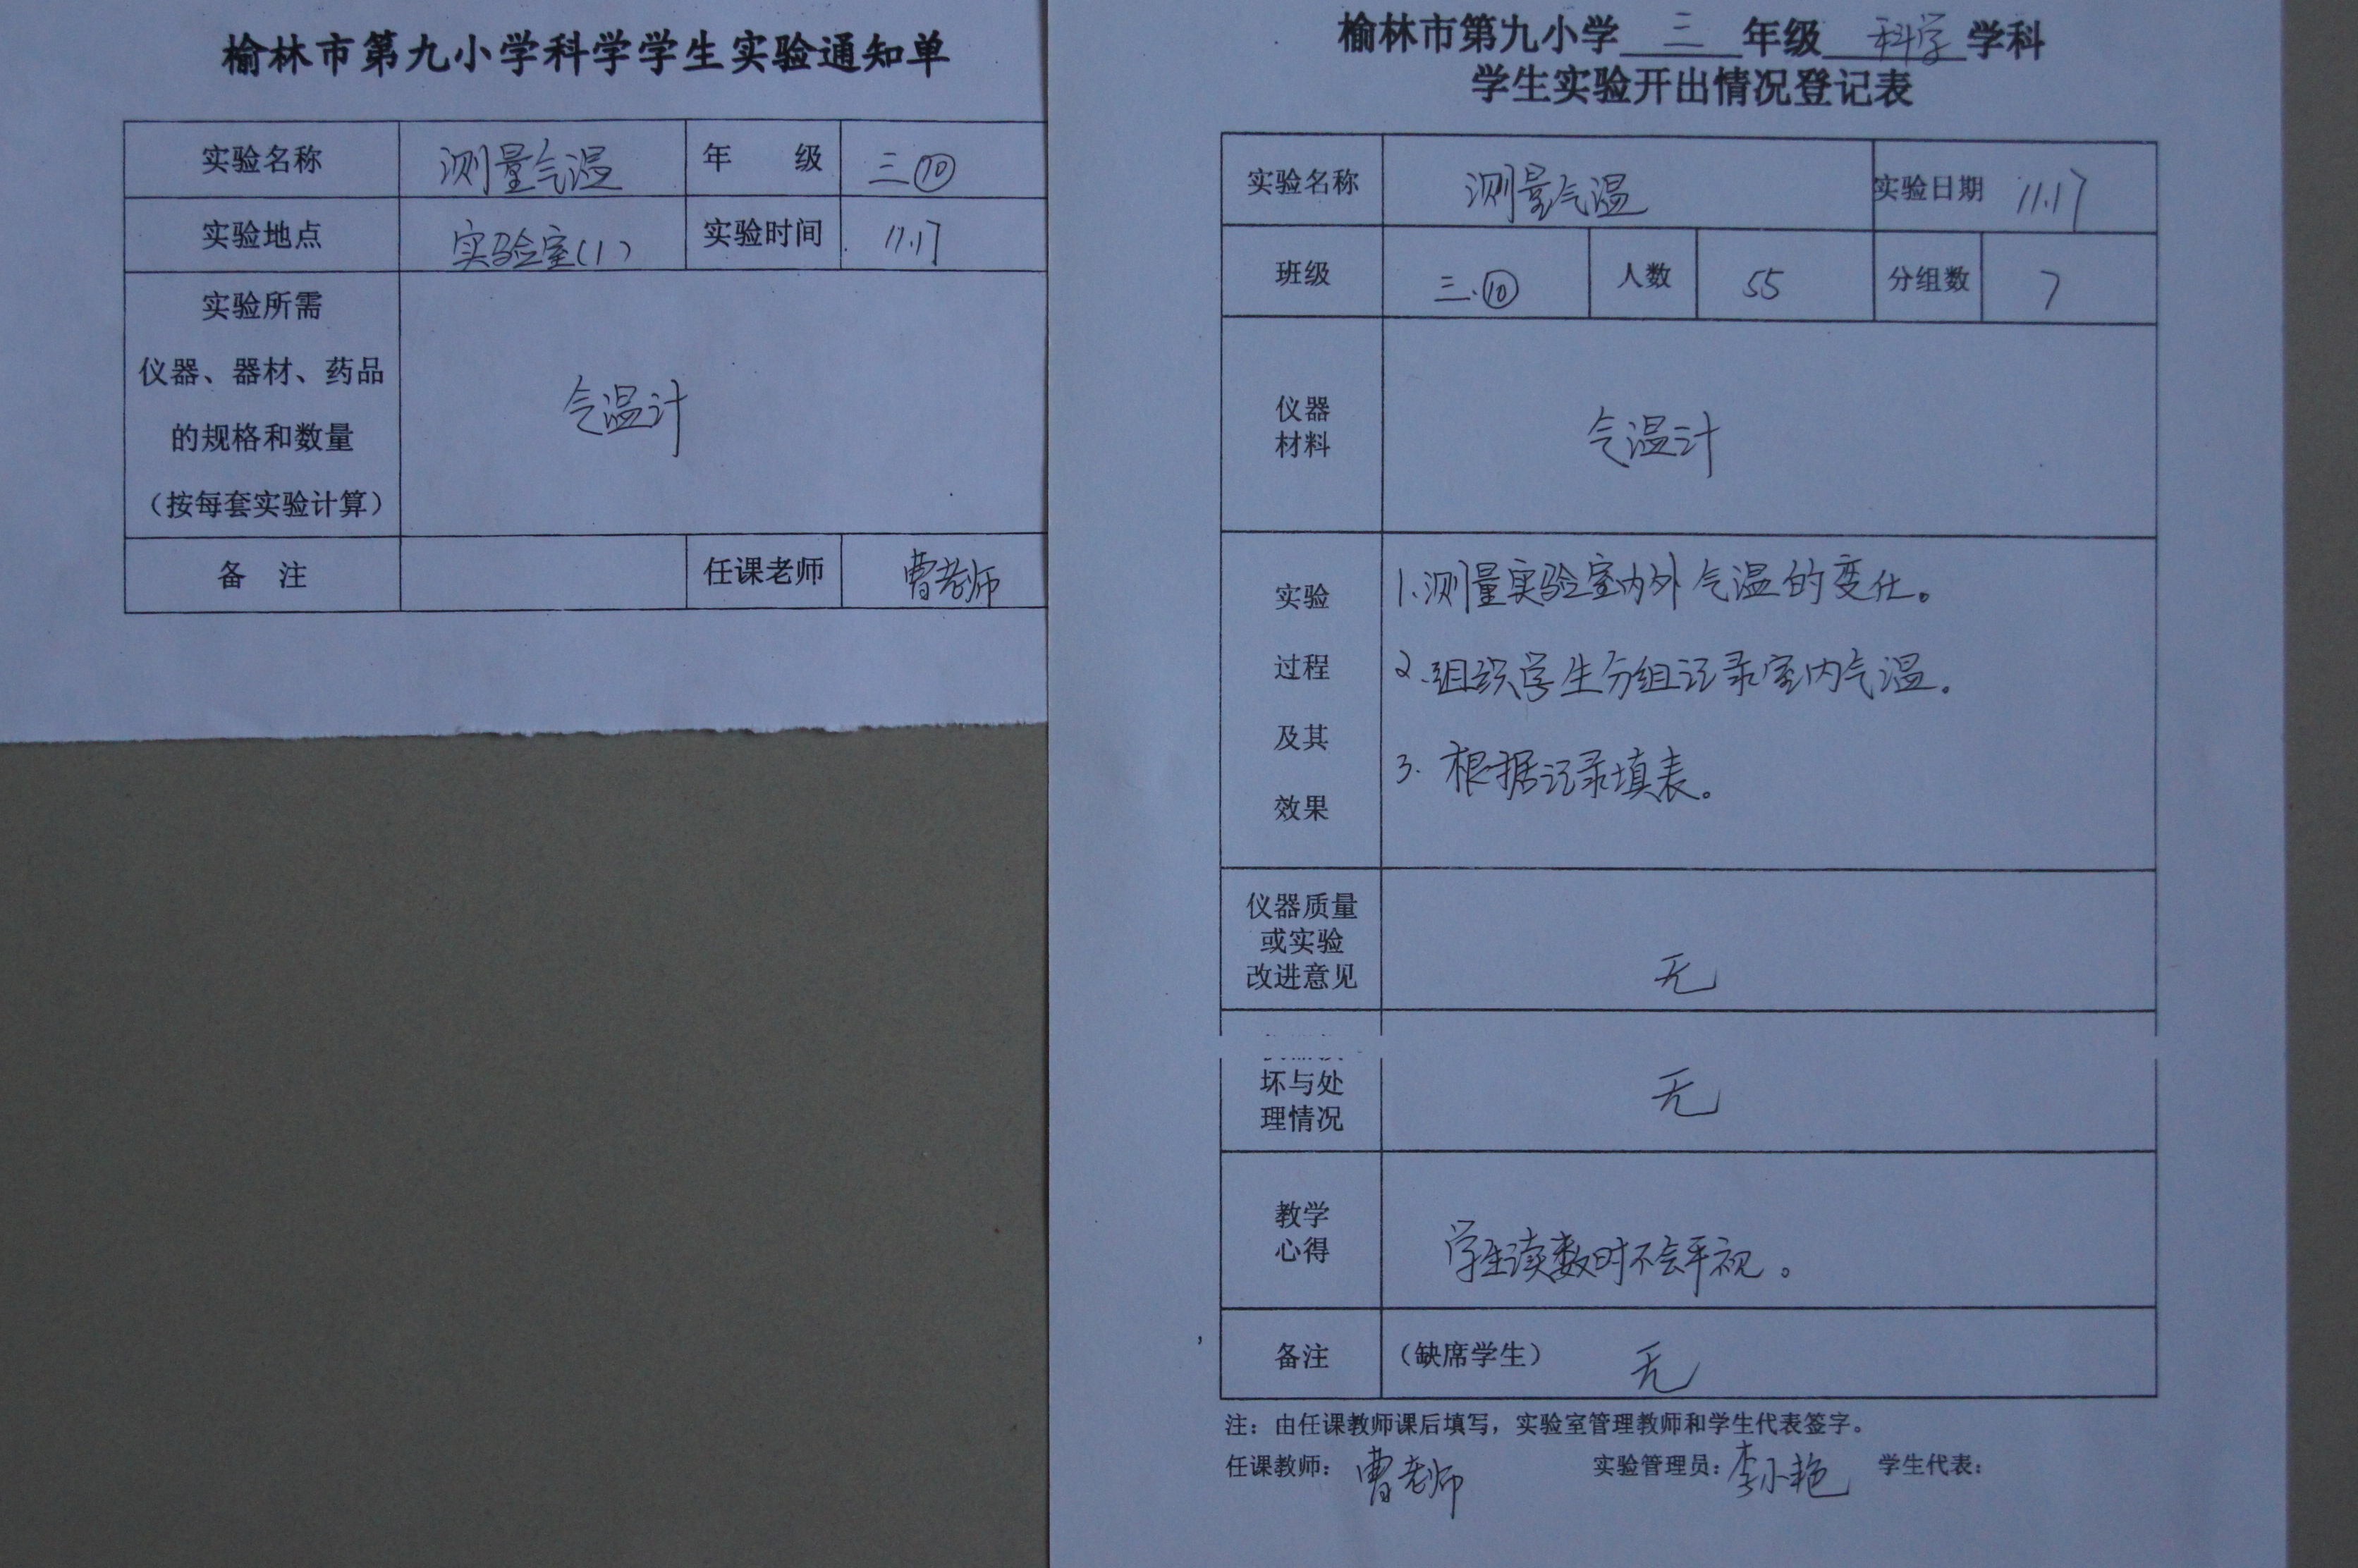 榆林市第九小学科学学生实验通知单
实验名称 测量气温 年 级 三⑩
实验地点 实验室(1) 实验时间 11.17
实验所需
仪器、器材、药品
的规格和数量
（按每套实验计算）
气温计
备 注 任课老师 曹老师
榆林市第九小学 三 年级 科学 学科
学生实验开出情况登记表
实验名称 测量气温 实验日期 11.17
班级 三.⑩ 人数 55 分组数 7
仪器
材料
气温计
实验
过程
及其
效果
1.测量实验室内外气温的变化。
2.组织学生分组记录室内气温。
3.根据记录填表。
仪器质量
或实验
改进意见
无
坏与处
理情况
无
教学
心得
学生读数时不会平视。
备注 （缺席学生） 无
注：由任课教师课后填写，实验室管理教师和学生代表签字。
任课教师：曹老师 实验管理员：李小艳 学生代表：